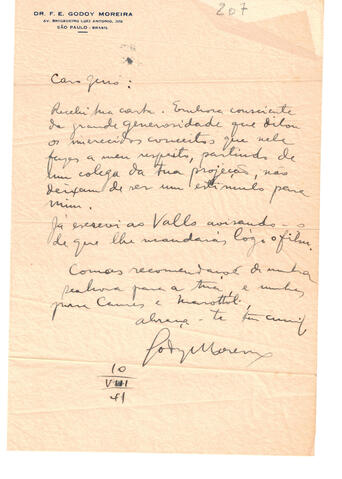 207
DR. F. E. GODOY MOREIRA
AV. BRIGADEIRO LUIZ ANTONIO,
SÃO PAULO - BRASIL
Caro
Recebi tua carta. Embora consciente
da grande generosidade que ditou
os imerecidos conceitos que nela
fazes a meu respeito, partindo de
um colega da tua projeção, não
deixam de ser um estimulo para
mim.
Já escrevi ao Valls avisando-o
de que lhe mandarás lógo o film.
Com as recomendações de minha
senhora para a tua, e minhas
para e
abraça-te teu
Godoy Moreira
10
VIII
41